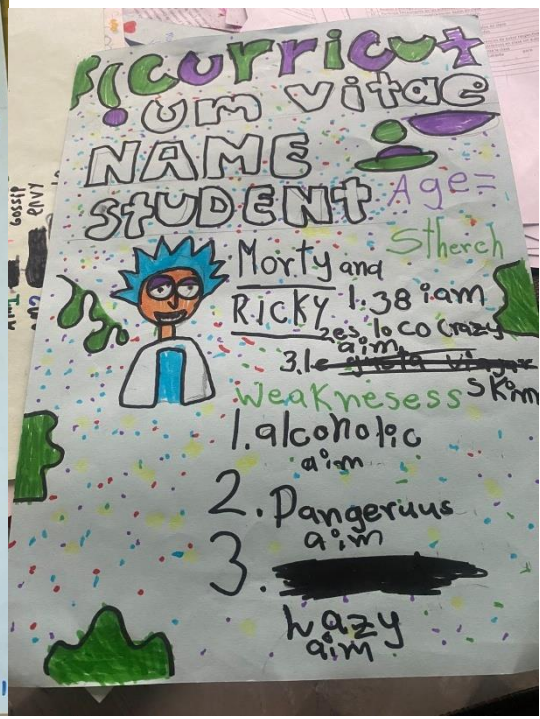 curricut
um vitae
NAME
STUDENT
Age=
Stherch
Morty and
RICKY
1.38 iam
2es loco crazy
aim
3.le
skinn
Weaknesess
1.alcoholic
aim
2.Dangeruus
aim
3.
Lazy
aim
Gossip
envy